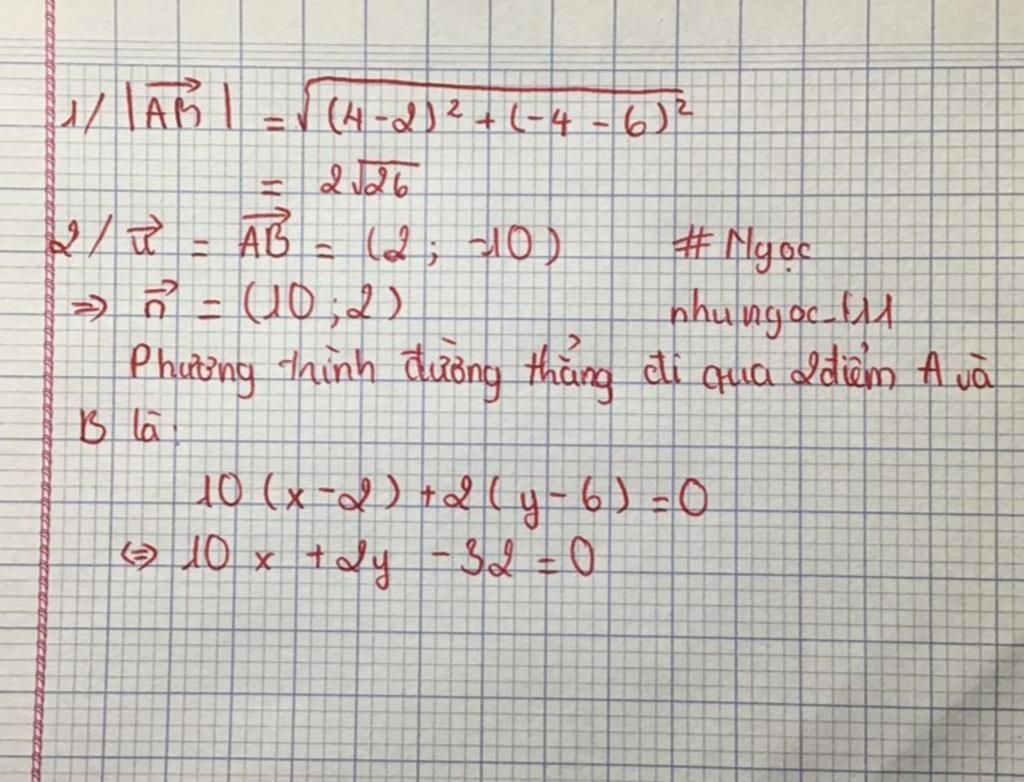 1/ |\overrightarrow{AB}| = √((4-2)² + (-4-6)²)
= 2√26
2/ \vec{u} = \overrightarrow{AB} = (2; -10) # Ngọc
=> \vec{n} = (10; 2) nhungoc_111
Phương trình đường thẳng đi qua 2 điểm A và
B là:
10(x-2) + 2(y-6) = 0
<=> 10x + 2y - 32 = 0